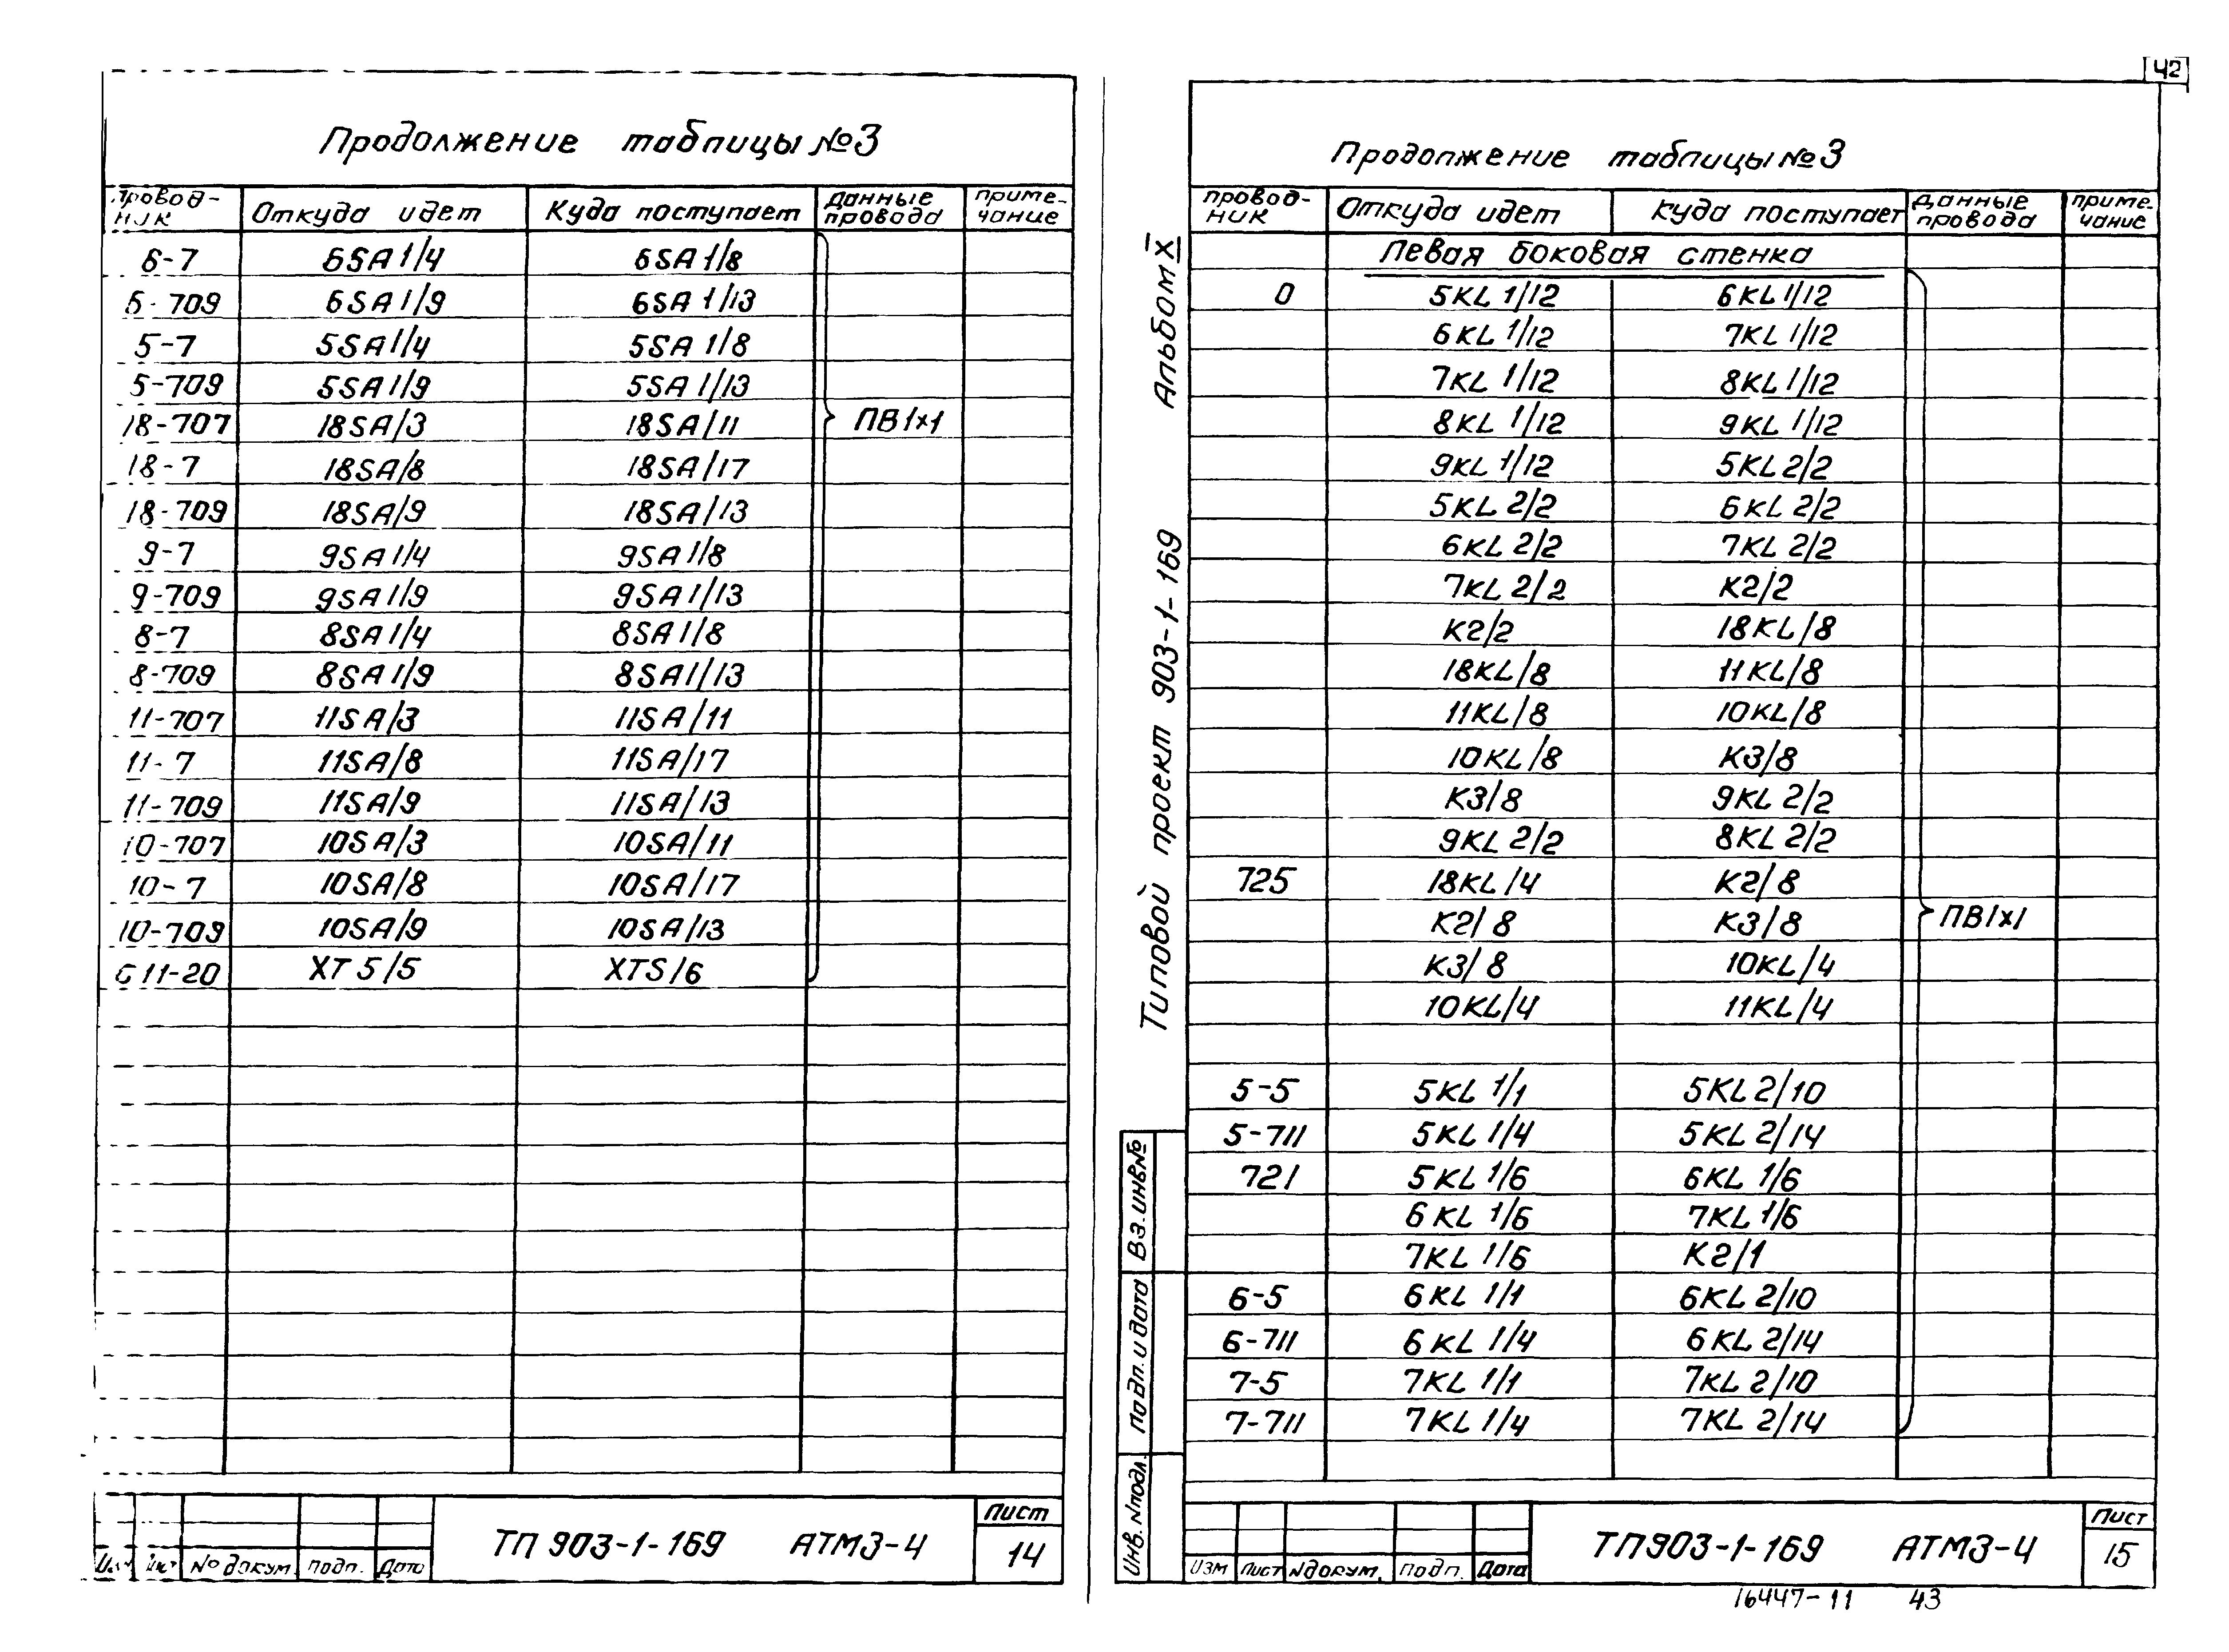 42
Продолжение таблицы №3
провод-ник Откуда идет Куда поступает Данные провода приме-чание
6-7 6SA1/4 6SA1/8
6-709 6SA1/9 6SA1/13
5-7 5SA1/4 5SA1/8
5-709 5SA1/9 5SA1/13
18-707 18SA/3 18SA/11 ПВ1×1
18-7 18SA/8 18SA/17
18-709 18SA/9 18SA/13
9-7 9SA1/4 9SA1/8
9-709 9SA1/9 9SA1/13
8-7 8SA1/4 8SA1/8
8-709 8SA1/9 8SA1/13
11-707 11SA/3 11SA/11
11-7 11SA/8 11SA/17
11-709 11SA/9 11SA/13
10-707 10SA/3 10SA/11
10-7 10SA/8 10SA/17
10-709 10SA/9 10SA/13
611-20 XT5/5 XT5/6
Изм Лист № докум. подп. Дата
ТП 903-1-169 АТМ3-4
Лист
14
Продолжение таблицы №3
провод-ник Откуда идет куда поступает Данные провода приме-чание
Левая боковая стенка
0 5KL1/12 6KL1/12
6KL1/12 7KL1/12
7KL1/12 8KL1/12
8KL1/12 9KL1/12
9KL1/12 5KL2/2
5KL2/2 6KL2/2
6KL2/2 7KL2/2
7KL2/2 K2/2
K2/2 18KL/8
18KL/8 11KL/8
11KL/8 10KL/8
10KL/8 K3/8
K3/8 9KL2/2
9KL2/2 8KL2/2
725 18KL/4 K2/8
K2/8 K3/8 ПВ1×1
K3/8 10KL/4
10KL/4 11KL/4
5-5 5KL1/1 5KL2/10
5-711 5KL1/4 5KL2/14
721 5KL1/6 6KL1/6
6KL1/6 7KL1/6
7KL1/6 K2/1
6-5 6KL1/1 6KL2/10
6-711 6KL1/4 6KL2/14
7-5 7KL1/1 7KL2/10
7-711 7KL1/4 7KL2/14
Типовой проект 903-1-169 Альбом X
Инв.Nподл. Подп. и дата Вз.инв№
Изм Лист Nдокум. Подп. Дата
ТП903-1-169 АТМ3-4
Лист
15
16447-11 43